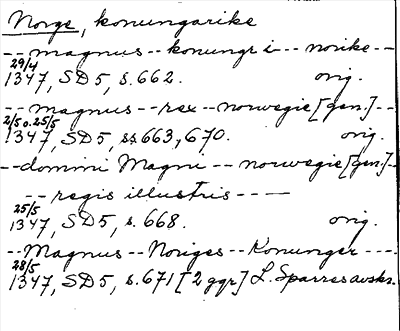 Norge, konungarike
--magnus--konungr i---norike--
29/4
1347, SD5, s.662. orig.
--magnus--rex--norwegie [gen.]--
2/5 o. 25/5
1347, SD5, ss.663,670. orig.
--domini Magni--norwegie [gen.]--
--regis illustris----
25/5
1347, SD5, s.668. orig.
--Magnus--Noriges--Konunger----
28/5
1347, SD5, s.671 [2 ggr] L. Sparres avskr.